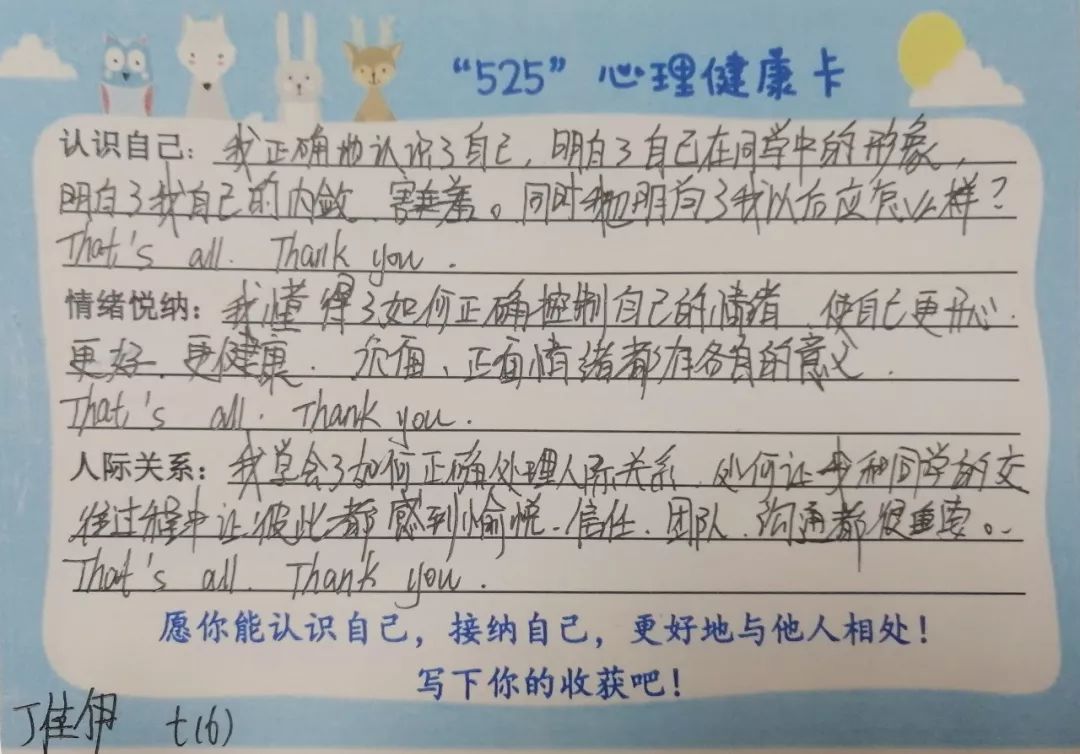 “525”心理健康卡
认识自己：我正确地认识了自己，明白了自己在同学中的形象，
明白了我自己的内敛、害羞。同时我也明白了我以后应怎么样？
That's all. Thank you.
情绪悦纳：我懂得了如何正确控制自己的情绪、使自己更开心、
更好、更健康. 负面、正面情绪都有各自的意义.
That's all. Thank you.
人际关系：我学会了如何正确处理人际关系、如何让我和同学的交
往过程中让彼此都感到愉悦、信任、团队、沟通都很重要。
That's all. Thank you.
愿你能认识自己，接纳自己，更好地与他人相处！
写下你的收获吧！
丁佳伊 七(6)